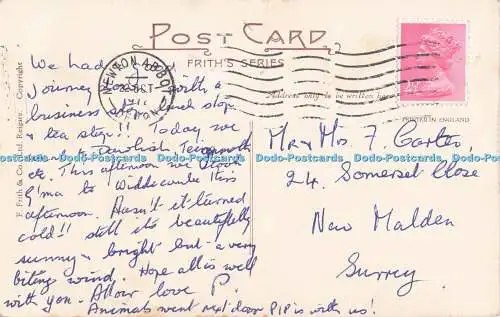 POST CARD
FRITH'S SERIES
Address only to be written here
PRINTED IN ENGLAND
F. Frith & Co. Ltd. Reigate. Copyright
NEWTON ABBOT
DEVON
2½P
We had a good
journey with a
business and lunch stop
& tea stop!! Today, we
went to Dawlish, Teignmouth
etc. This afternoon we drove
G'ma to Widdecombe this
afternoon. Hasn't it turned
cold!! still it's beautifully
sunny & bright but a very
biting wind. Hope all is well
with you. All our love P.
Animals went next door P/P is with us!
Mr & Mrs. F. Carter,
24. Somerset Close
New Malden
Surrey.
Dodo-Postcards Dodo-Postcards Dodo-Postcards Dodo-Postcards Dodo-Postcards Dodo-Postcards